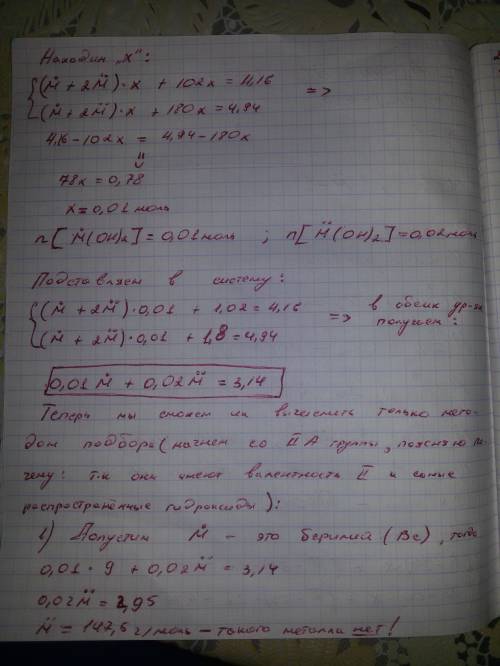 Находим "x":
(Ṁ + 2M̈)·x + 102x = 4,16
(Ṁ + 2M̈)·x + 180x = 4,94 =>
4,16 - 102x = 4,94 - 180x
78x = 0,78
x = 0,01 моль
n[Ṁ(OH)₂] = 0,01 моль ; n[M̈(OH)₂] = 0,02 моль
Подставляем в систему:
(Ṁ + 2M̈)·0,01 + 1,02 = 4,16
(Ṁ + 2M̈)·0,01 + 1,8 = 4,94 => в обеих ур-ях получаем:
0,01Ṁ + 0,02M̈ = 3,14
Теперь мы сможем их вычислить только мето-
дом подбора (начнем со II A группы, поясняю по-
чему: т.к они имеют валентность II и самые
распространённые гидроксиды):
1) Допустим Ṁ - это берилий (Be), тогда
0,01 · 9 + 0,02M̈ = 3,14
0,02M̈ = 2,95
M̈ = 147,5 г/моль - такого металла нет!